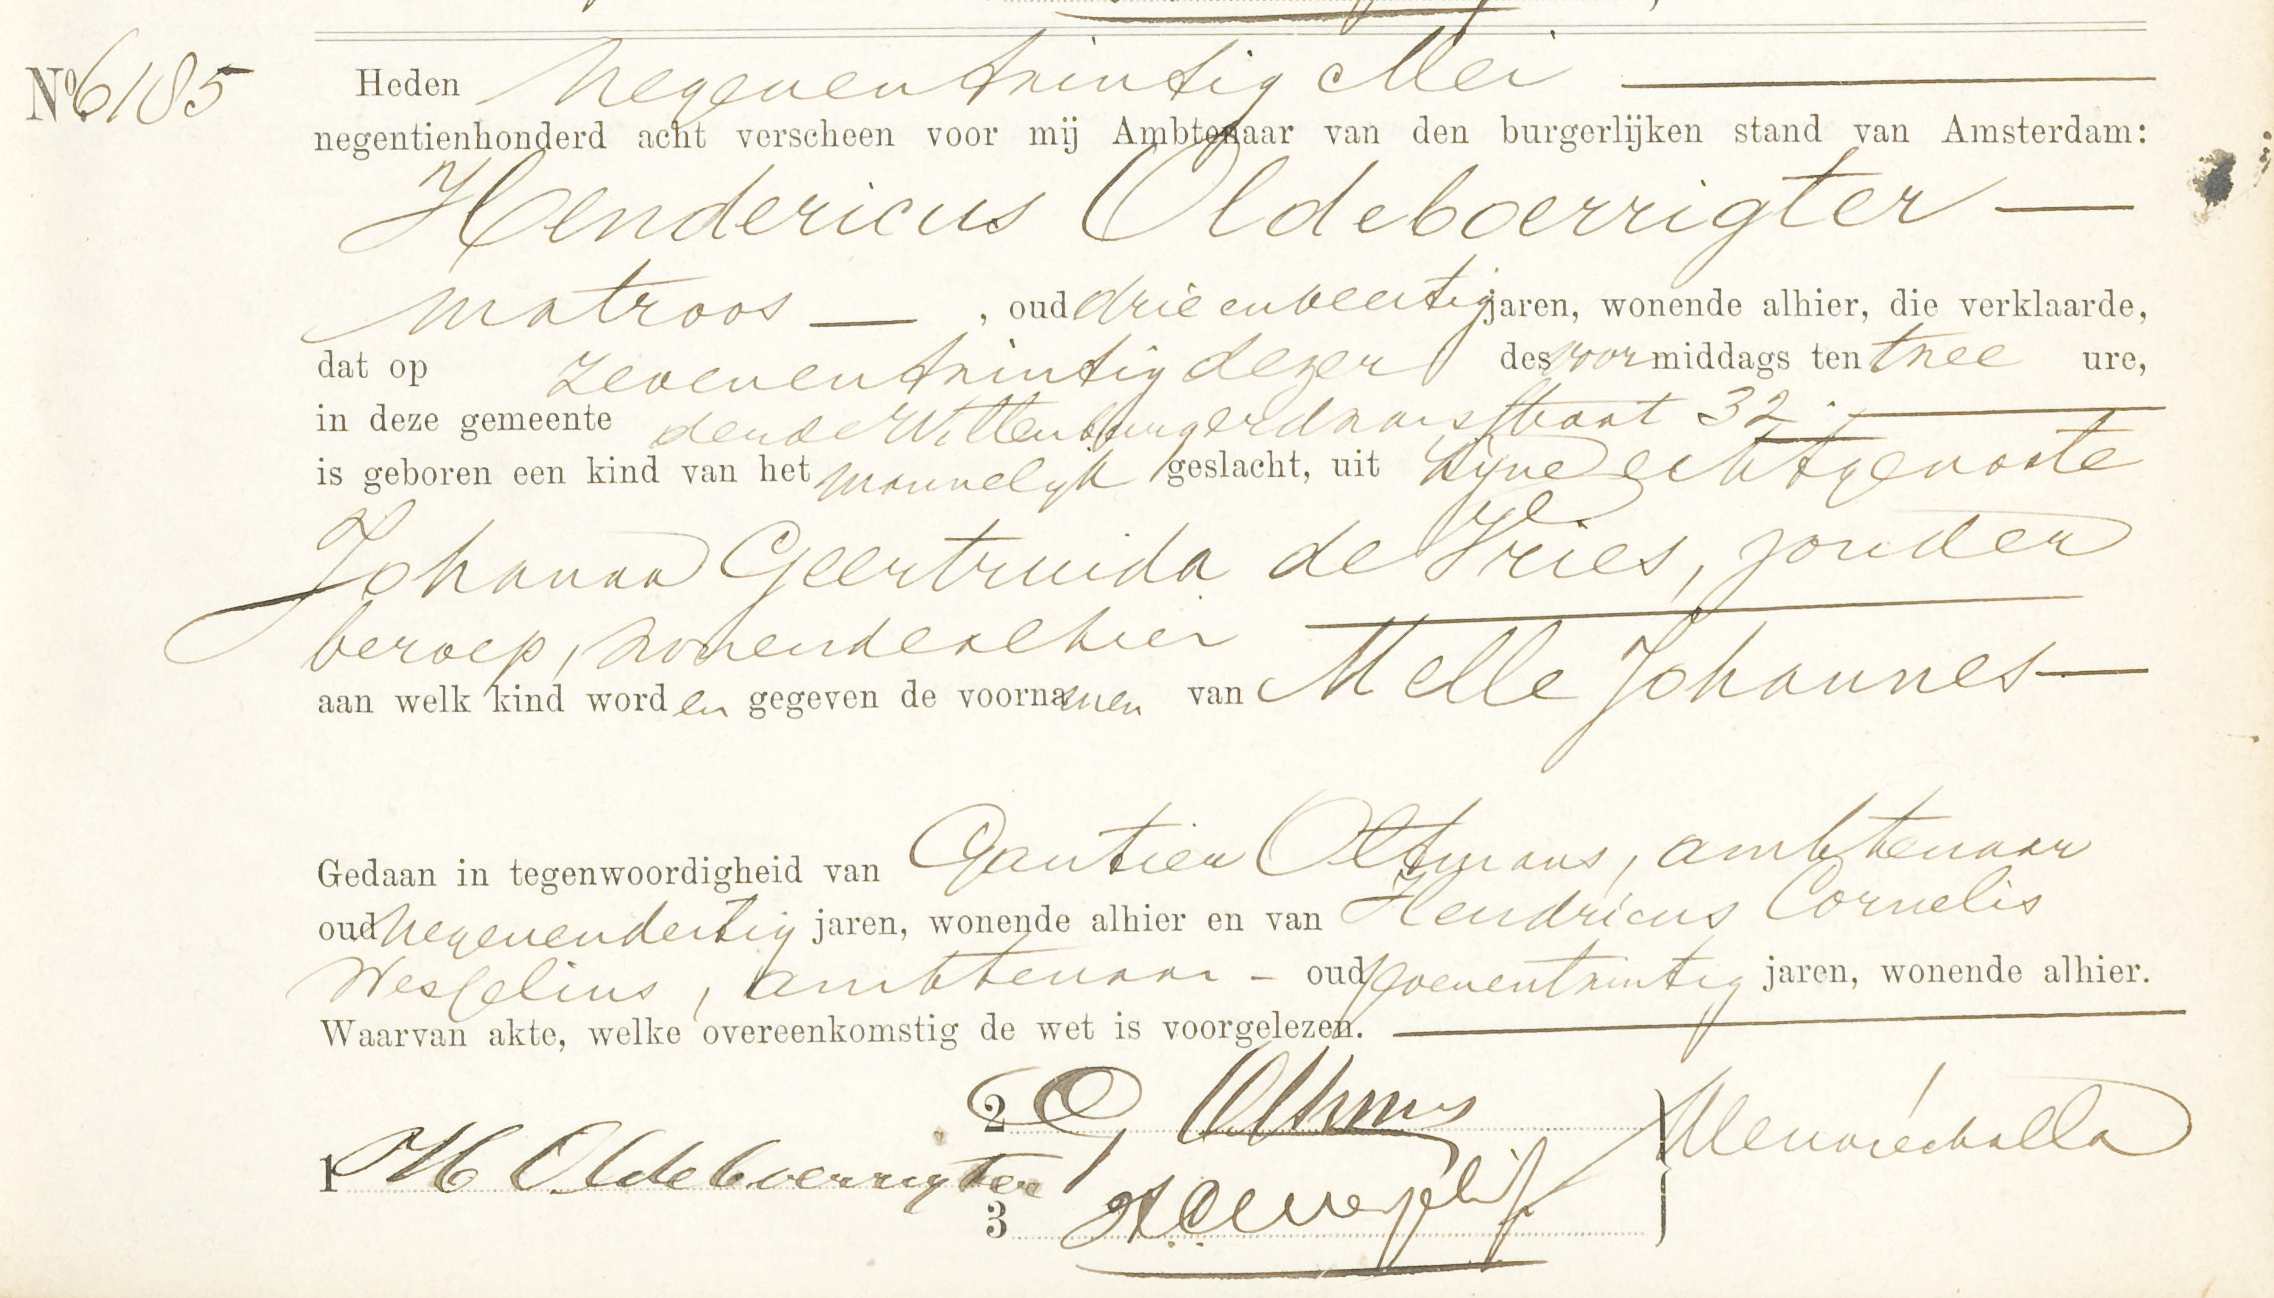 No 6185 Heden negenentwintig Mei
negentienhonderd acht verscheen voor mij Ambtenaar van den burgerlijken stand van Amsterdam:
Hendericus Oldeboerrigter
matroos, oud drie en veertig jaren, wonende alhier, die verklaarde,
dat op zevenentwintig dezer des voormiddags ten twee ure,
in deze gemeente derde Wittenburgerdwarsstraat 32
is geboren een kind van het mannelijk geslacht, uit zijne echtgenoote
Johanna Geertruida de Vries, zonder
beroep, wonende alhier
aan welk kind worden gegeven de voornamen van Melle Johannes
Gedaan in tegenwoordigheid van Oltmans, ambtenaar
oud negenendertig jaren, wonende alhier en van Hendricus Cornelis
Wesselius, ambtenaar - oud zevenentwintig jaren, wonende alhier.
Waarvan akte, welke overeenkomstig de wet is voorgelezen.
2 G Oltmans
1 H Oldeboerrigter
3 H C Wesselius